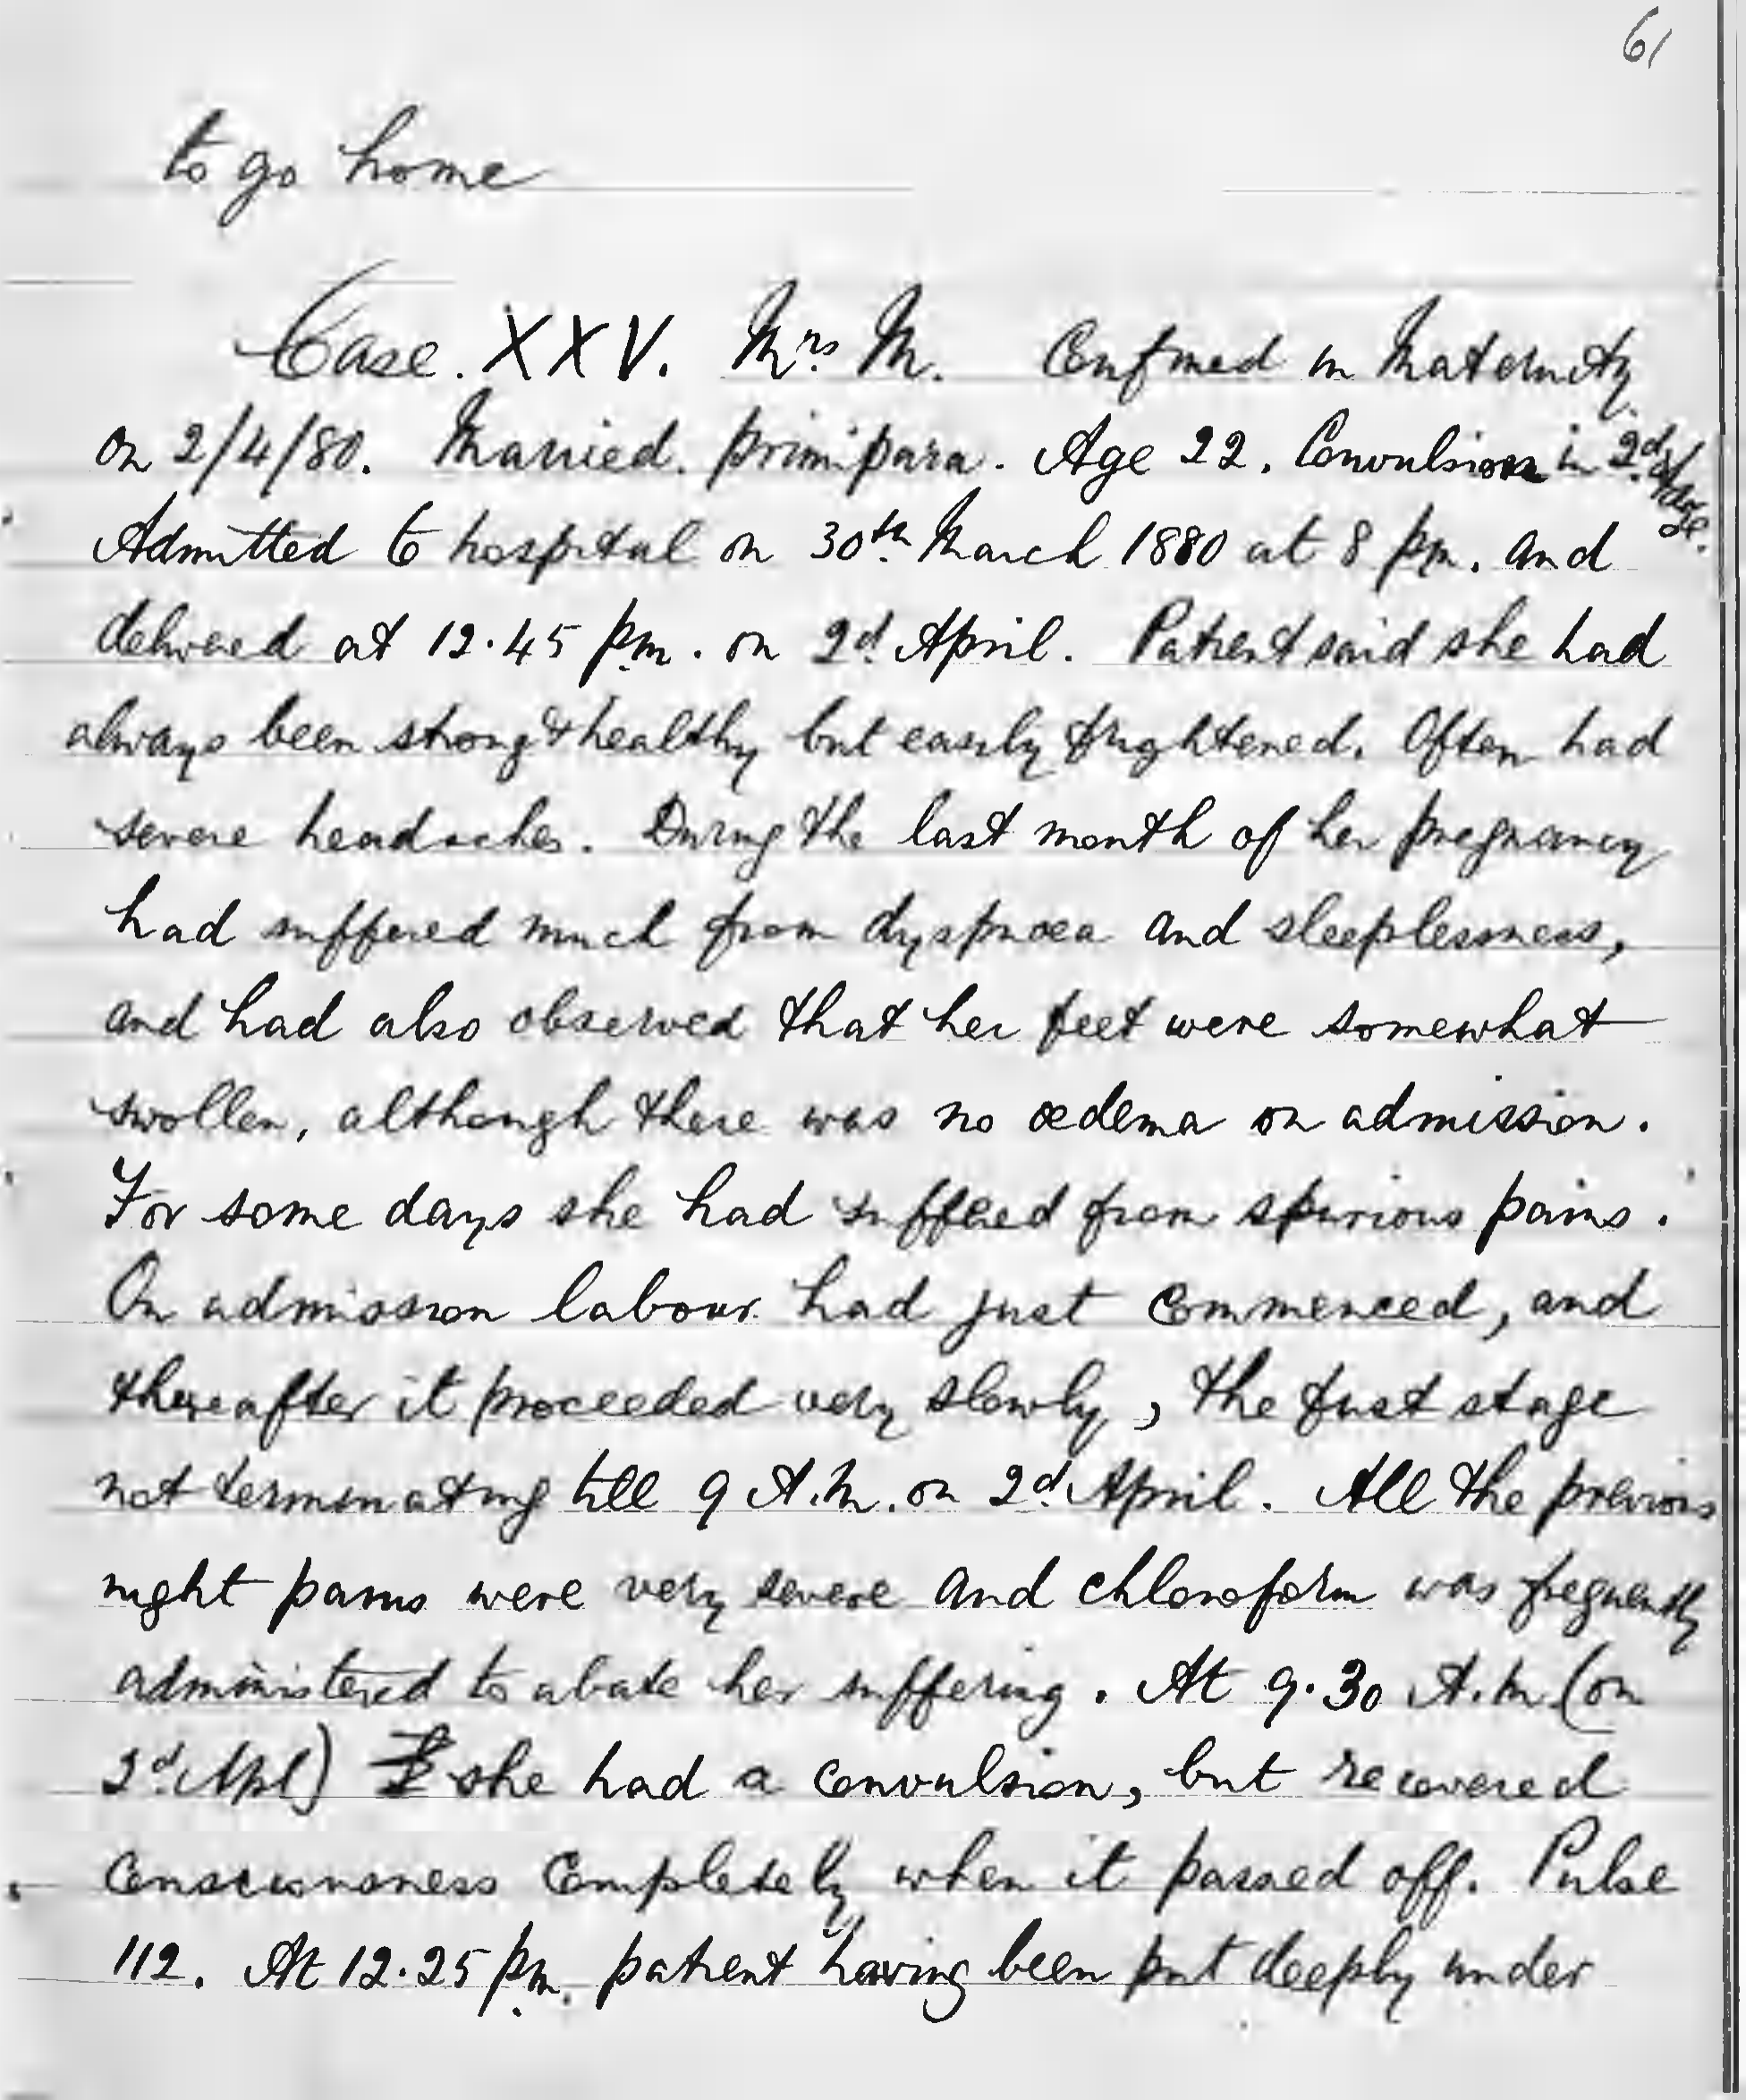 61
to go home
Case. XXV. Mrs. M. Confined in Maternity
on 2/4/80. Married. primipara. Age 22. Convulsion in 2d. stage.
Admitted to hospital on 30th. March 1880 at 8 pm. and
delivered at 12.45 pm. on 2d. April. Patient said she had
always been strong & healthy but easily frightened. Often had
severe headaches. During the last month of her pregnancy
had suffered much from dyspnoea and sleeplessness,
and had also observed that her feet were somewhat
swollen, although there was no œdema on admission.
For some days she had suffered from spurious pains.
On admission labour had just commenced, and
thereafter it proceeded very slowly, the first stage
not terminating till 9 A.M. on 2d. April. All the previous
night pains were very severe and chloroform was frequently
administered to abate her suffering. At 9.30 A.M. (on
2d. Apl) she had a convulsion, but recovered
consciousness completely when it passed off. Pulse
112. At 12.25 pm. patient having been put deeply under